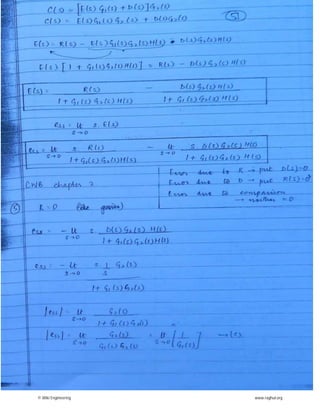 C(s) = [E(s) G₁(s) + D(s)] G₂(s)
C(s) = E(s) G₁(s) G₂(s) + D(s) G₂(s)
51
E(s) = R(s) - E(s) G₁(s) G₂(s) H(s) - D(s) G₂(s) H(s)
E(s) [1 + G₁(s) G₂(s) H(s)] = R(s) - D(s) G₂(s) H(s)
E(s) = R(s) / 1 + G₁(s) G₂(s) H(s) - D(s) G₂(s) H(s) / 1 + G₁(s) G₂(s) H(s)
ess = lt s→0 s E(s)
ess = lt s→0 s R(s) / 1 + G₁(s) G₂(s) H(s) - lt s→0 s D(s) G₂(s) H(s) / 1 + G₁(s) G₂(s) H(s)
Error due to R → put D(s)=0
Error due to D → put R(s)=0
Error due to
→ neither = 0
CWB chapter 2
R = 0 (given)
ess = - lt s→0 s D(s) G₂(s) H(s) / 1 + G₁(s) G₂(s) H(s)
ess = - lt s→0 s 1/s G₂(s) / 1 + G₁(s) G₂(s)
|ess| = lt s→0 G₂(s) / 1 + G₁(s) G₂(s)
|ess| = lt s→0 G₂(s) / G₁(s) G₂(s) = lt s→0 [1 / G₁(s)]
www.raghul.org